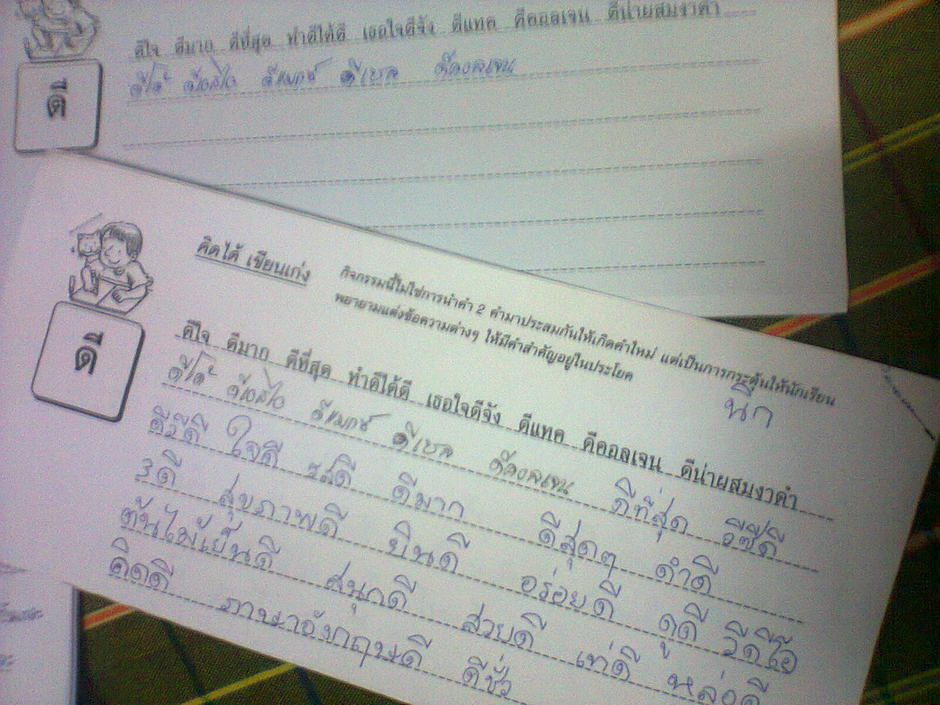 ดีใจ ดีมาก ดีที่สุด ทำดีได้ดี เธอใจดีจัง ดีแทค ดีคอลเจน ดีน่าผสมงาดำ
ดีเซล
ดี
คิดได้ เขียนเก่ง
กิจกรรมนี้ไม่ใช่การนำคำ 2 คำมาประสมกันให้เกิดคำใหม่ แต่เป็นการกระตุ้นให้นักเรียน
พยายามแต่งข้อความต่างๆ ให้มีคำสำคัญอยู่ในประโยค
นีก
ดี
ดีใจ ดีมาก ดีที่สุด ทำดีได้ดี เธอใจดีจัง ดีแทค ดีคอลเจน ดีน่าผสมงาดำ
ดีเซล ดีที่สุด วีซีดี
ดีวีดี ใจดี รสดี ดีมาก ดีสุดๆ ดำดี
3ดี สุขภาพดี ยินดี อร่อยดี ดูดี วีดีโอ
ต้นไม้เย็นดี สนุกดี สวยดี เท่ดี หล่อดี
คิดดี ภาษาอังกฤษดี ดีชั่ว